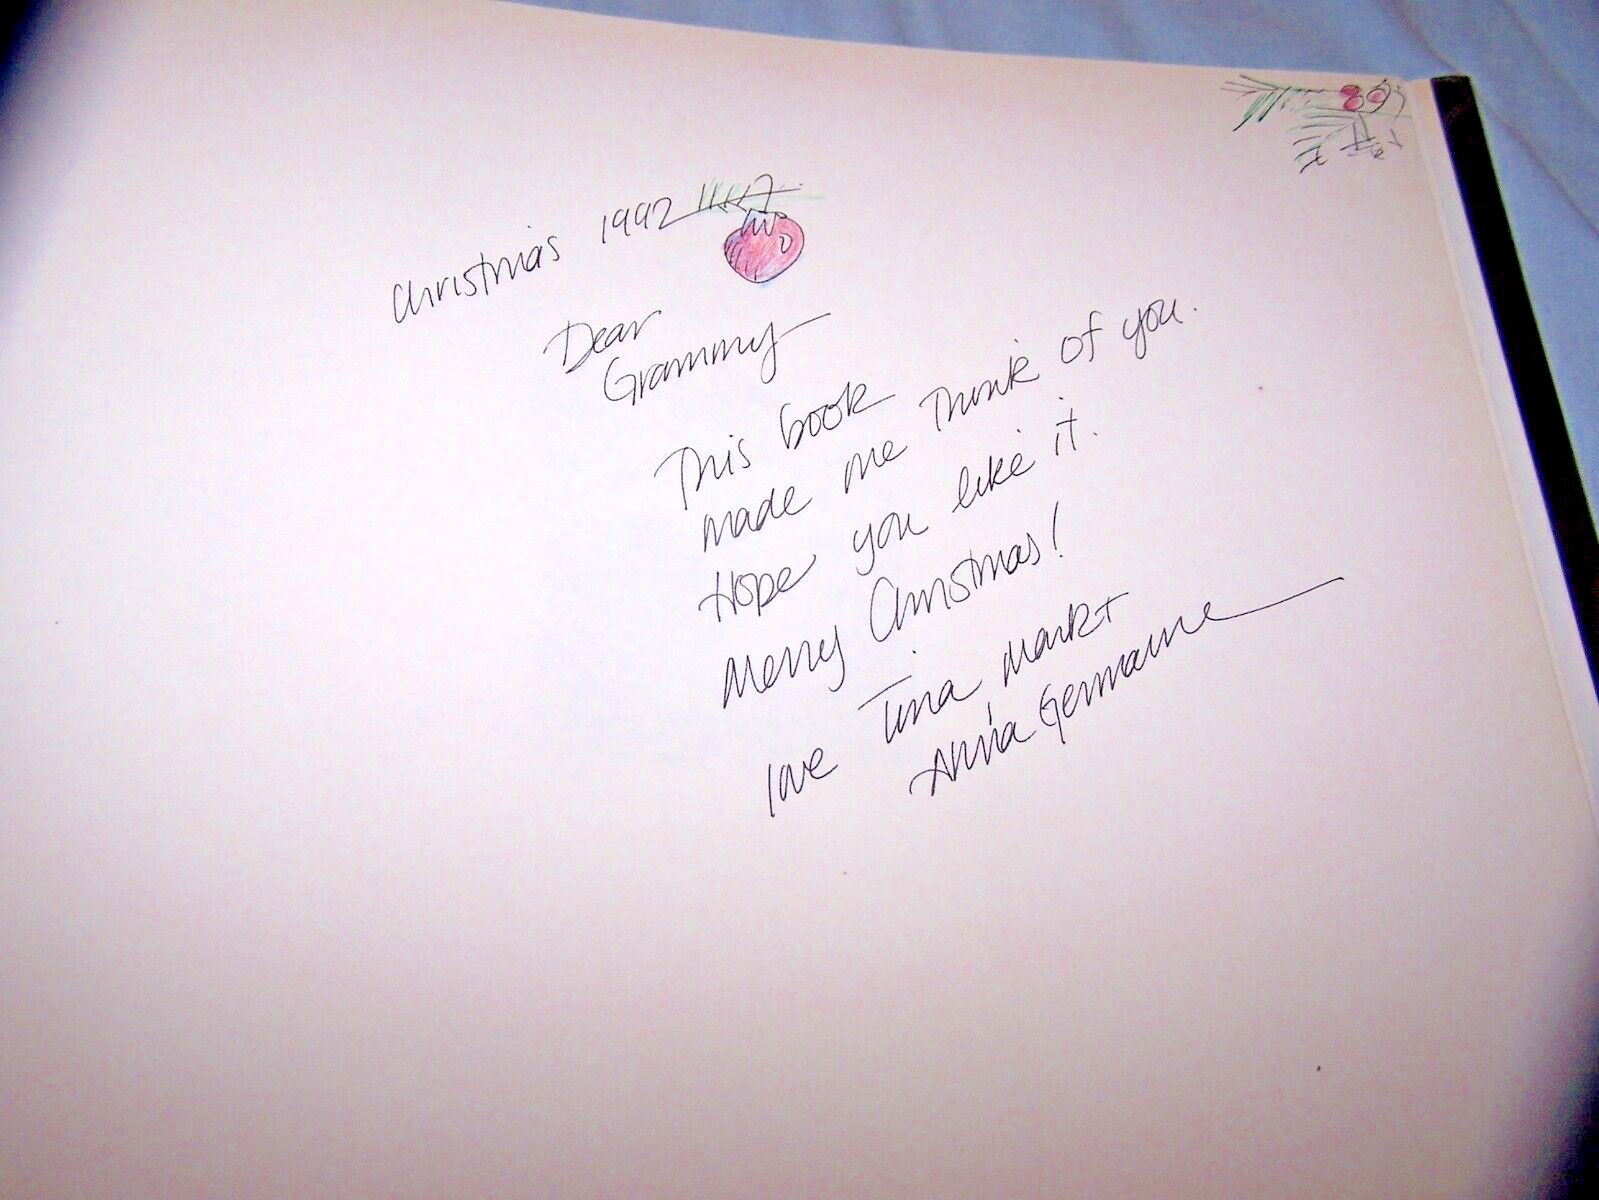 Christmas 1992
Dear
Grammy
This book
made me think of you.
Hope you like it.
Merry Christmas!
love Tina Mark +
Anna Germaine